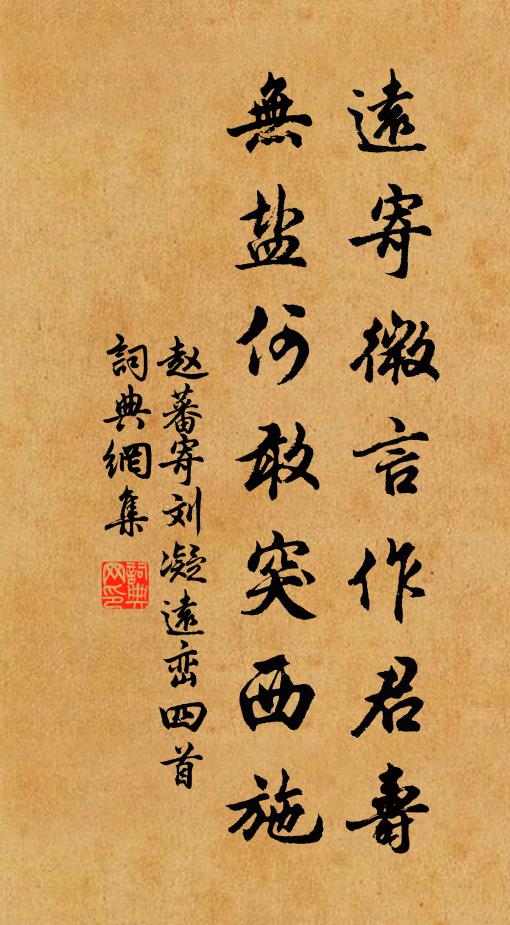 遠寄微言作君壽
無盐何敢突西施
赵蕃寄刘凝遠峦四首
詞典網集
詞典网印